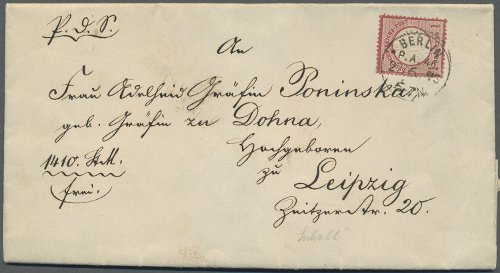 P. d. S.
BERLIN
P.A.
An
Frau Adelheid Gräfin Poninska,
geb. Gräfin zu Dohna,
Hochgeboren
1410. St. M.
frei.
zu
Leipzig
Zeitzerstr. 20.
"Inhalt"